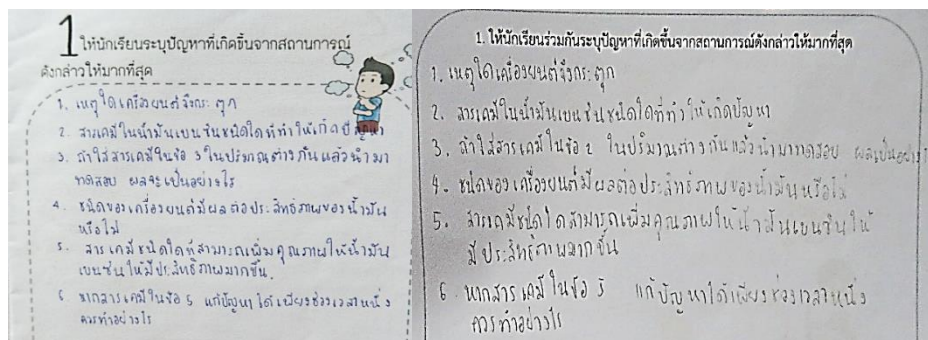 1 ให้นักเรียนระบุปัญหาที่เกิดขึ้นจากสถานการณ์
ดังกล่าวให้มากที่สุด
1. เหตุใดเครื่องยนต์จึงกระตุก
2. สารเคมีในน้ำมันเบนซินชนิดใดที่ทำให้เกิดปัญหา
3. ถ้าใส่สารเคมีในข้อ 3 ในปริมาณต่างกันแล้วนำมา
ทดสอบ ผลจะเป็นอย่างไร
4. ชนิดของเครื่องยนต์มีผลต่อประสิทธิภาพของน้ำมัน
หรือไม่
5. สารเคมีชนิดใดที่สามารถเพิ่มคุณภาพให้น้ำมัน
เบนซินให้มีประสิทธิภาพมากขึ้น
6. หากสารเคมีในข้อ 5 แก้ปัญหาได้เพียงช่วงเวลาหนึ่ง
ควรทำอย่างไร
1. ให้นักเรียนร่วมกันระบุปัญหาที่เกิดขึ้นจากสถานการณ์ดังกล่าวให้มากที่สุด
1. เหตุใดเครื่องยนต์จึงกระตุก
2. สารเคมีในน้ำมันเบนซินชนิดใดที่ทำให้เกิดปัญหา
3. ถ้าใส่สารเคมีในข้อ 2 ในปริมาณต่างกันแล้วนำมาทดสอบ ผลเป็นอย่างไร
4. ชนิดของเครื่องยนต์มีผลต่อประสิทธิภาพของน้ำมันหรือไม่
5. สารเคมีชนิดใดสามารถเพิ่มคุณภาพให้น้ำมันเบนซินให้
มีประสิทธิภาพมากขึ้น
6. หากสารเคมีในข้อ 5 แก้ปัญหาได้เพียงช่วงเวลาหนึ่ง
ควรทำอย่างไร